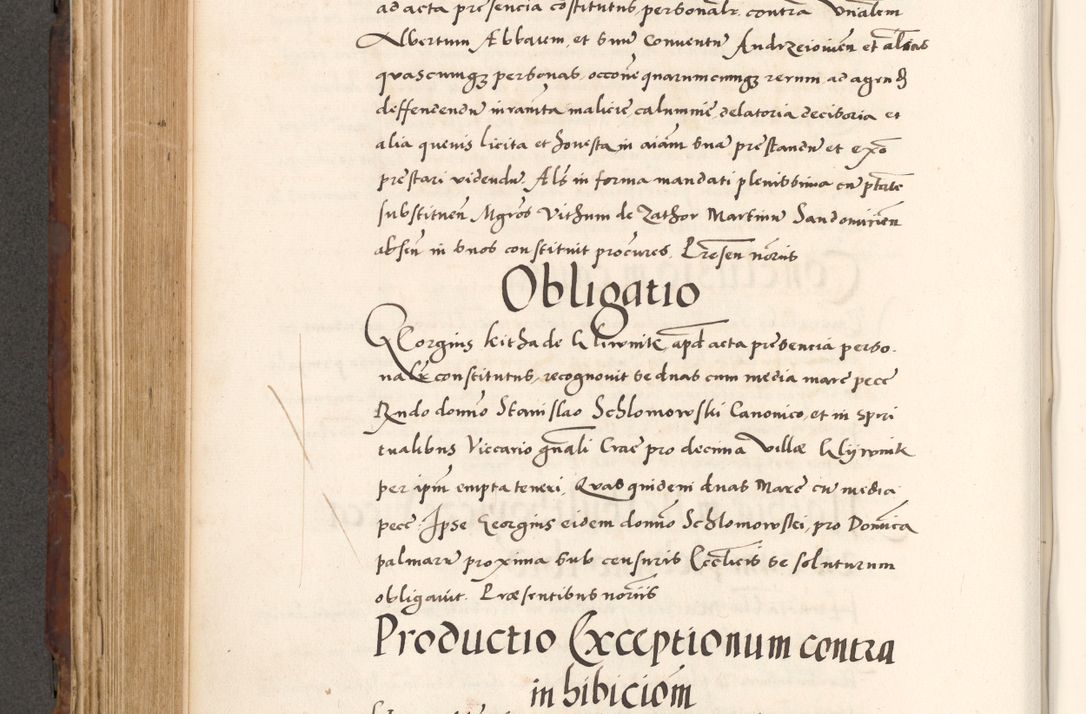 ad acta presencia cōstitutus personalr. contra Vnālem
Albertum Abbatem, et suū Conventū Andrzeioviēn et alias
quascumqʒ personas, occōne quarumcumqʒ rerum, ad agend
deffendendū iuramta malicie, calumnie, delatoria decisoria et
alia quevis licita et honesta in aīam suā prestandū et exō
prestari videndū. Als in forma mandati plenissima cū ptāte
substituēn Mgros Vithum de Zathor Martinū Sandomiriēn
absēn in suos constituit procures. Presēn noriis
Obligatio
Georgius Kitha de Klivnik, apd acta presencia perso
nalr constitutus, recognovit se duas cum media marc pecc
Rndo domno Stanislao Schlomowski Canonico, et in spiri
tualibus Viccario gnāli Crac pro decima villæ Klijwnik
per ipm empta teneri, Quas quidem duas Marc cū media
pecc. Ipse Georgius eidem domno Schlomowski, pro Domīca
palmarū proxima sub censuris Ecclīcis se soluturum
obligavit. Præsentibus noriis
Productio Exceptionum contra
inhibiciom